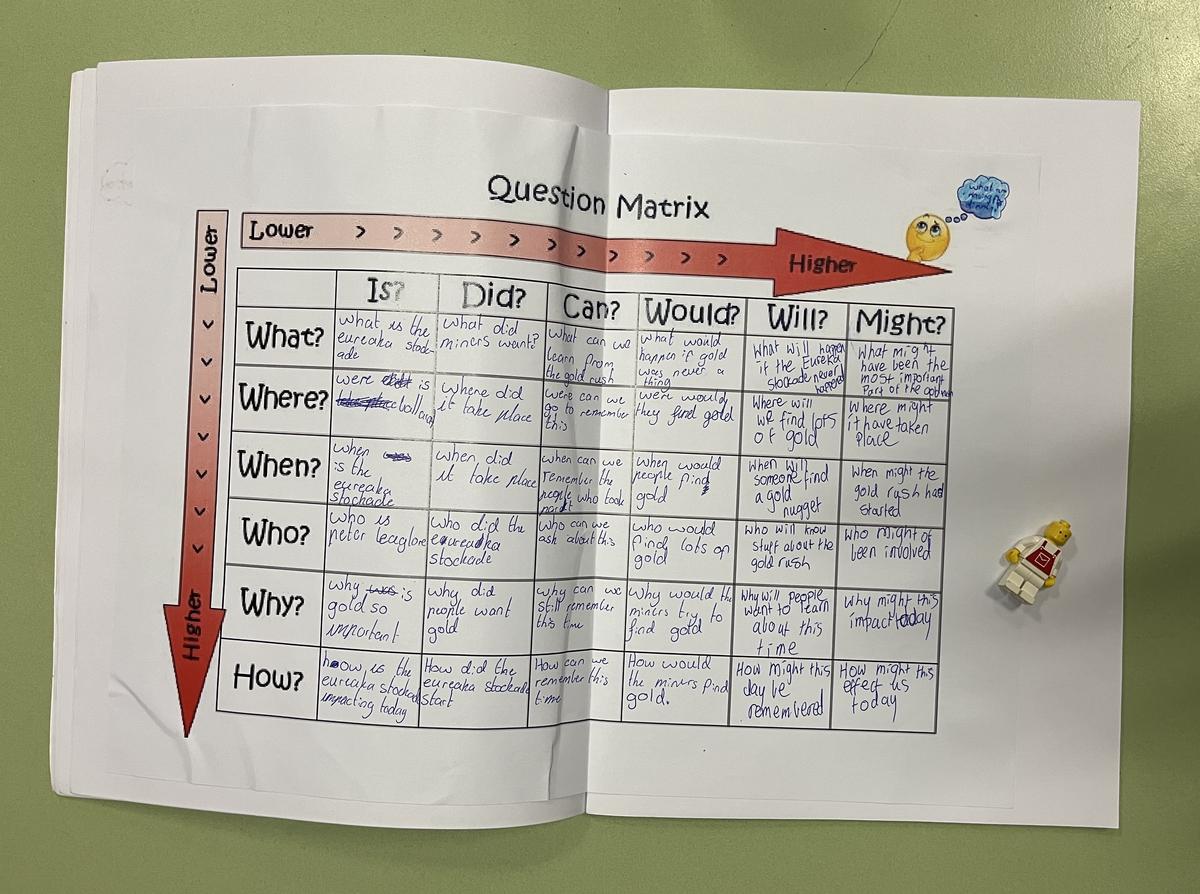 Question Matrix
what am
I having for
dinner
Lower > > > > > > > > > > > Higher
Lower
Higher
Is? Did? Can? Would? Will? Might?
What?
what is the
eureaka stock-
ade
what did
miners want?
what can we
learn from
the gold rush
what would
happen if gold
was never a
thing
What will happen
if the Eureka
stockade never
happened
What might
have been the
most important
part of the gold rush
Where?
were is
ballarat
where did
it take place
were can we
go to remember
this
were would
they find gold
Where will
we find lots
of gold
Where might
it have taken
place
When?
when
is the
eureaka
stockade
when did
it take place
when can we
remember the
people who took
part
when would
people find
gold
when will
someone find
a gold
nugget
when might the
gold rush had
started
Who?
who is
peter leaglore
who did the
eureaka
stockade
who can we
ask about this
who would
find lots of
gold
who will know
stuff about the
gold rush
who might of
been involved
Why?
why is
gold so
important
why did
people want
gold
why can we
still remember
this time
Why would the
miners try to
find gold
Why will people
want to learn
about this
time
why might this
impact today
How?
how is the
eureaka stockade
impacting today
How did the
eureaka stockade
start
How can we
remember this
time
How would
the miners find
gold.
How might this
day be
remembered
How might this
effect us
today